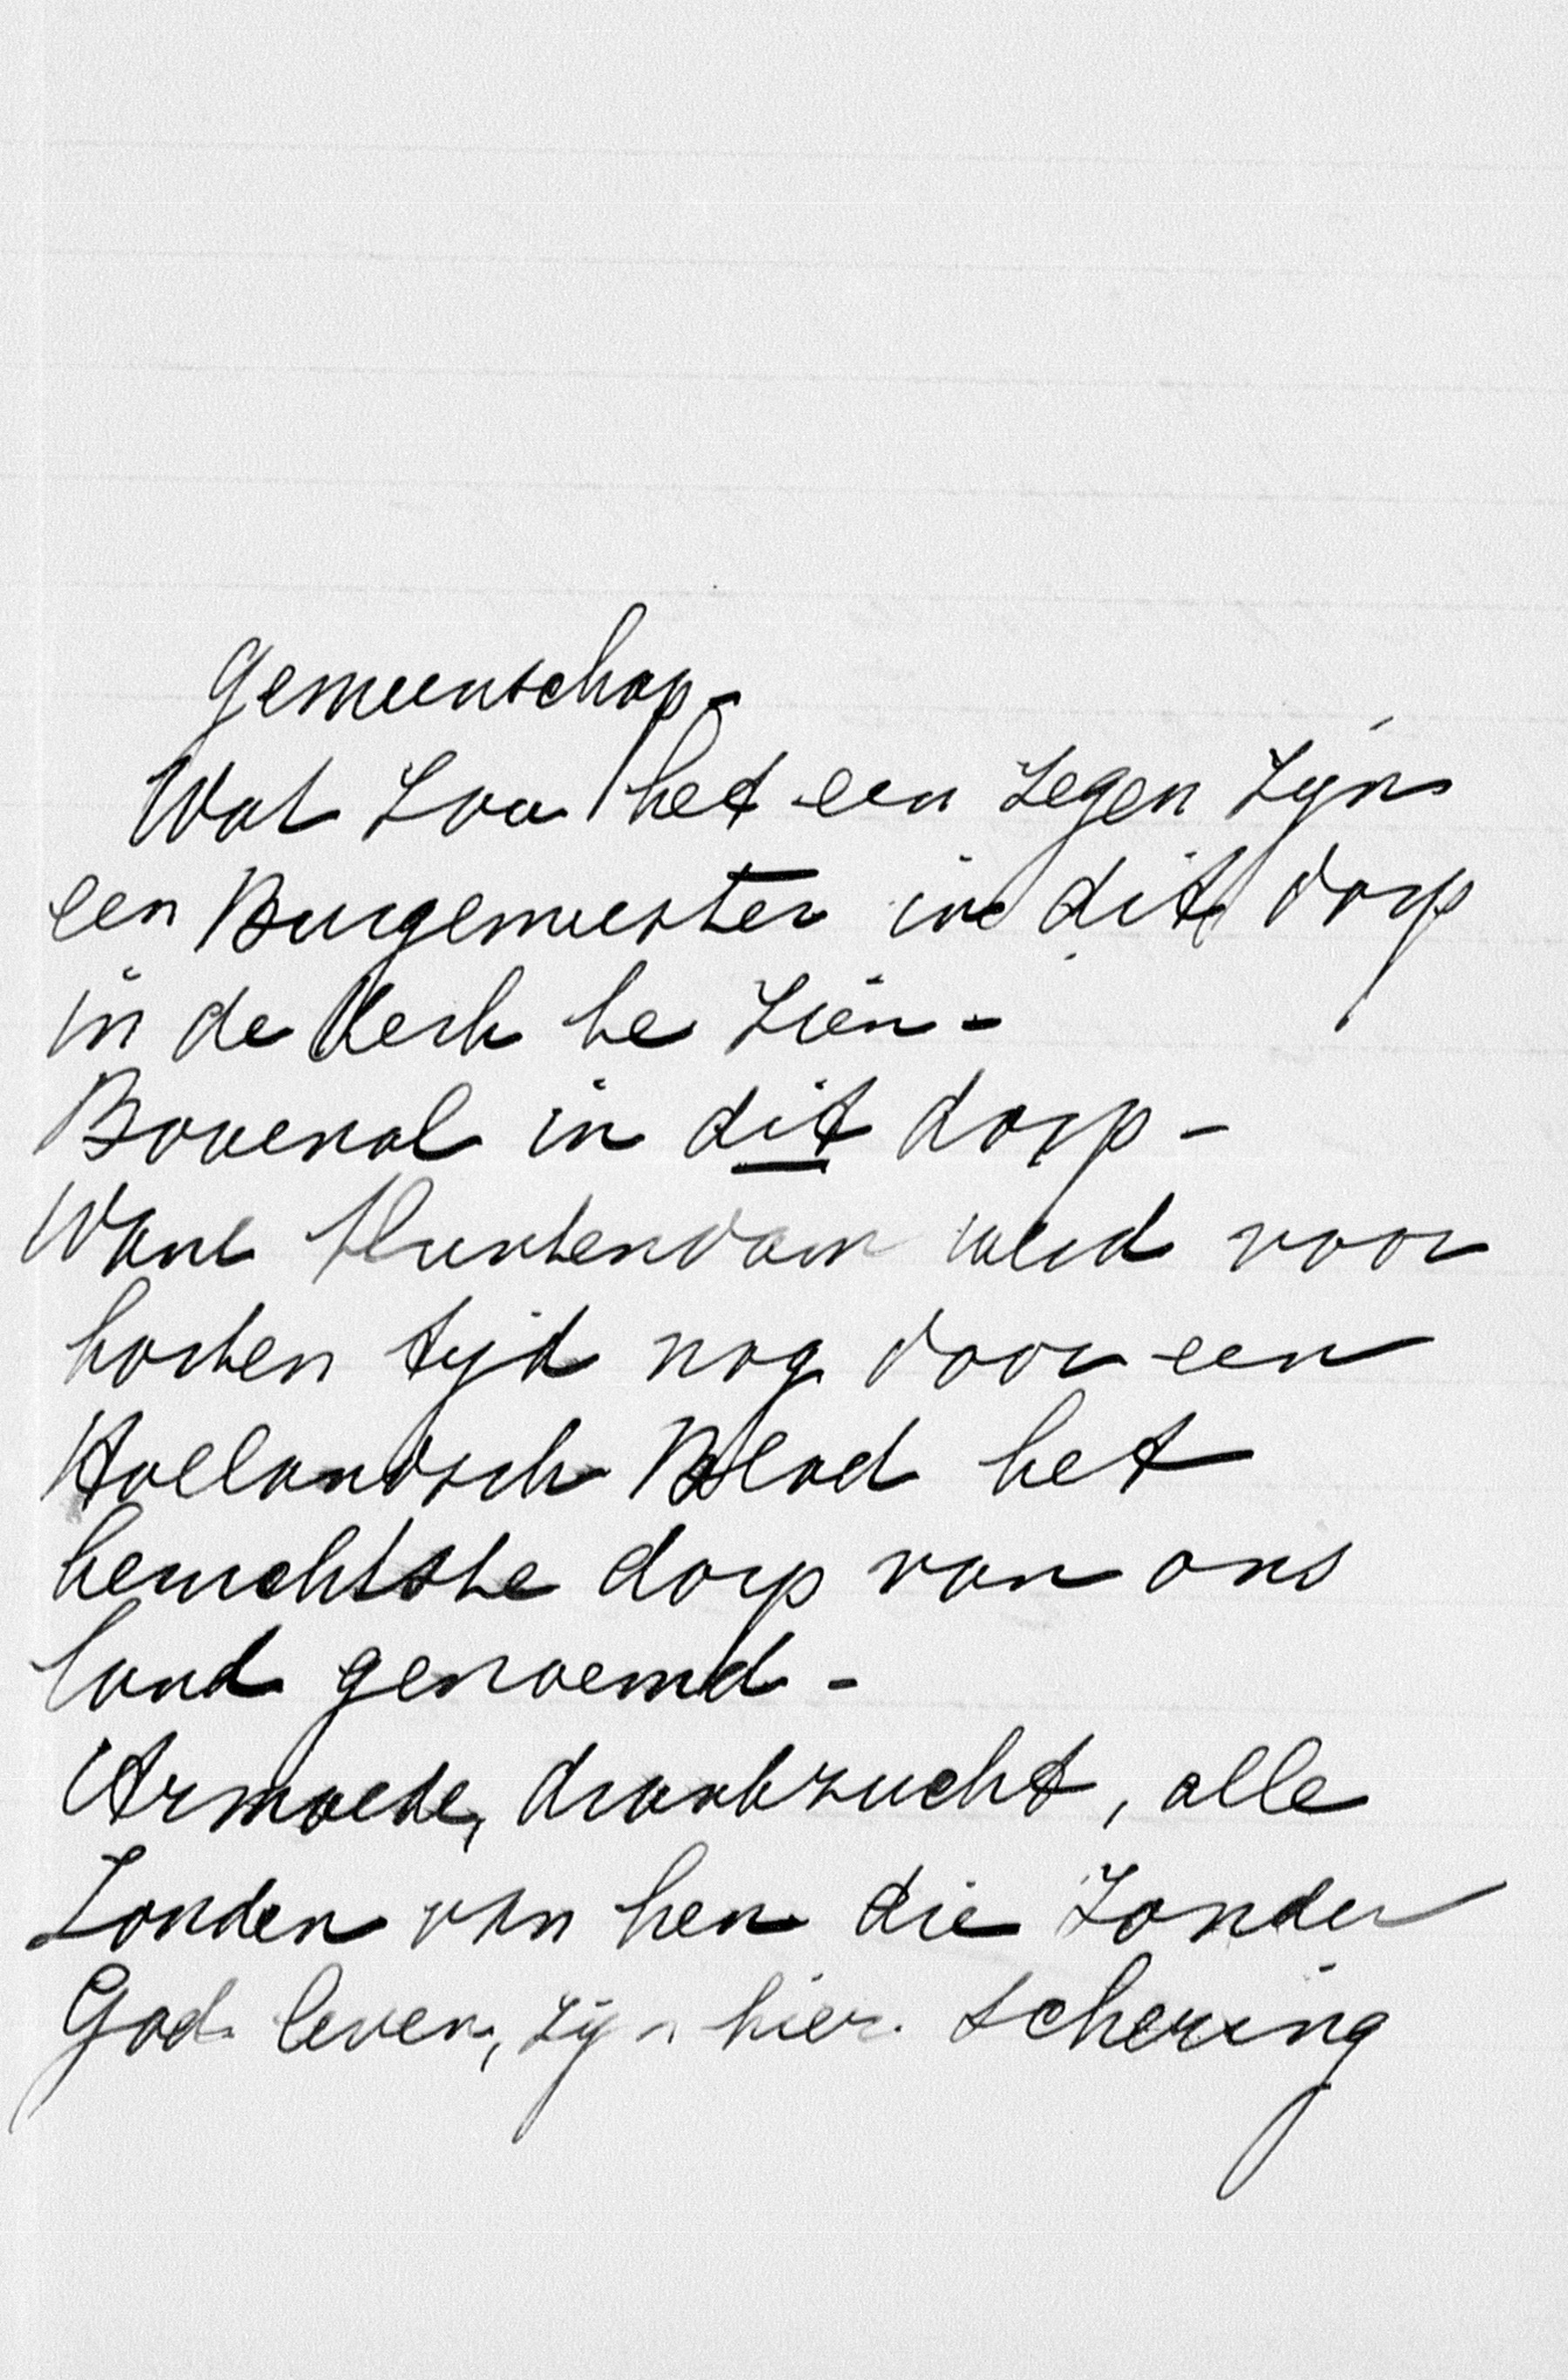 gemeenschap-
Wat zou het een zegen zijn
een Burgemeester in dit dorp
in de Kerk te zien-
Bovenal in dit dorp-
Want Muntendam werd voor
korten tijd nog door een
Hollandsch Blad het
beruchtste dorp van ons
land genoemd-
Armoede, drankzucht, alle
Zonden van hen die zonder
God leven, zijn hier schering